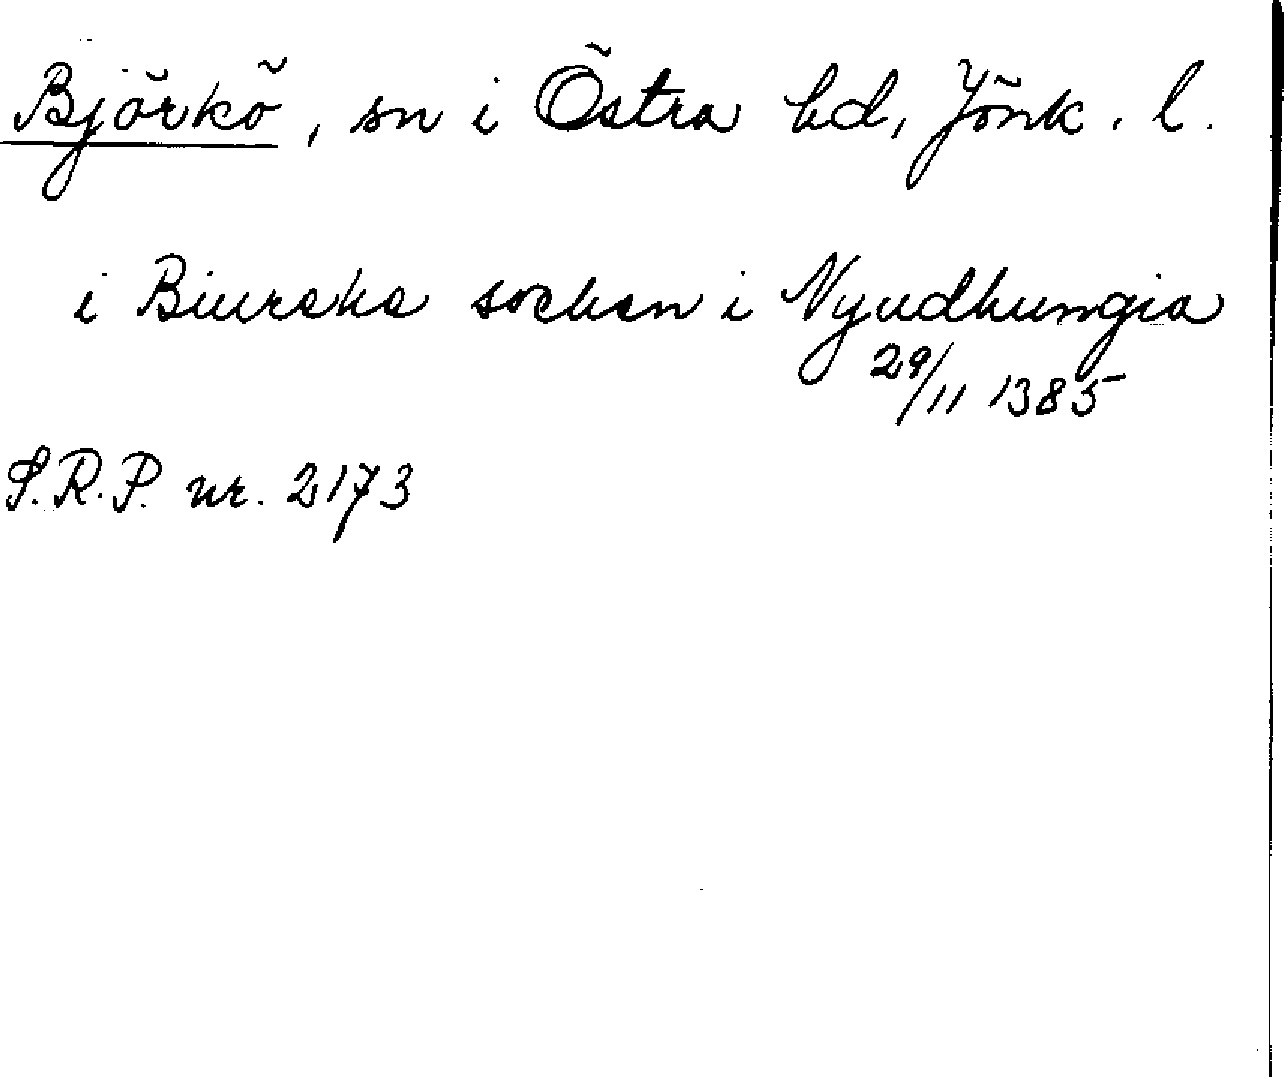 Björkö, sn i Östra hd, Jönk. l.
i Biureke socken i Nyudhungia
29/11 1385
S.R.P. nr. 2173